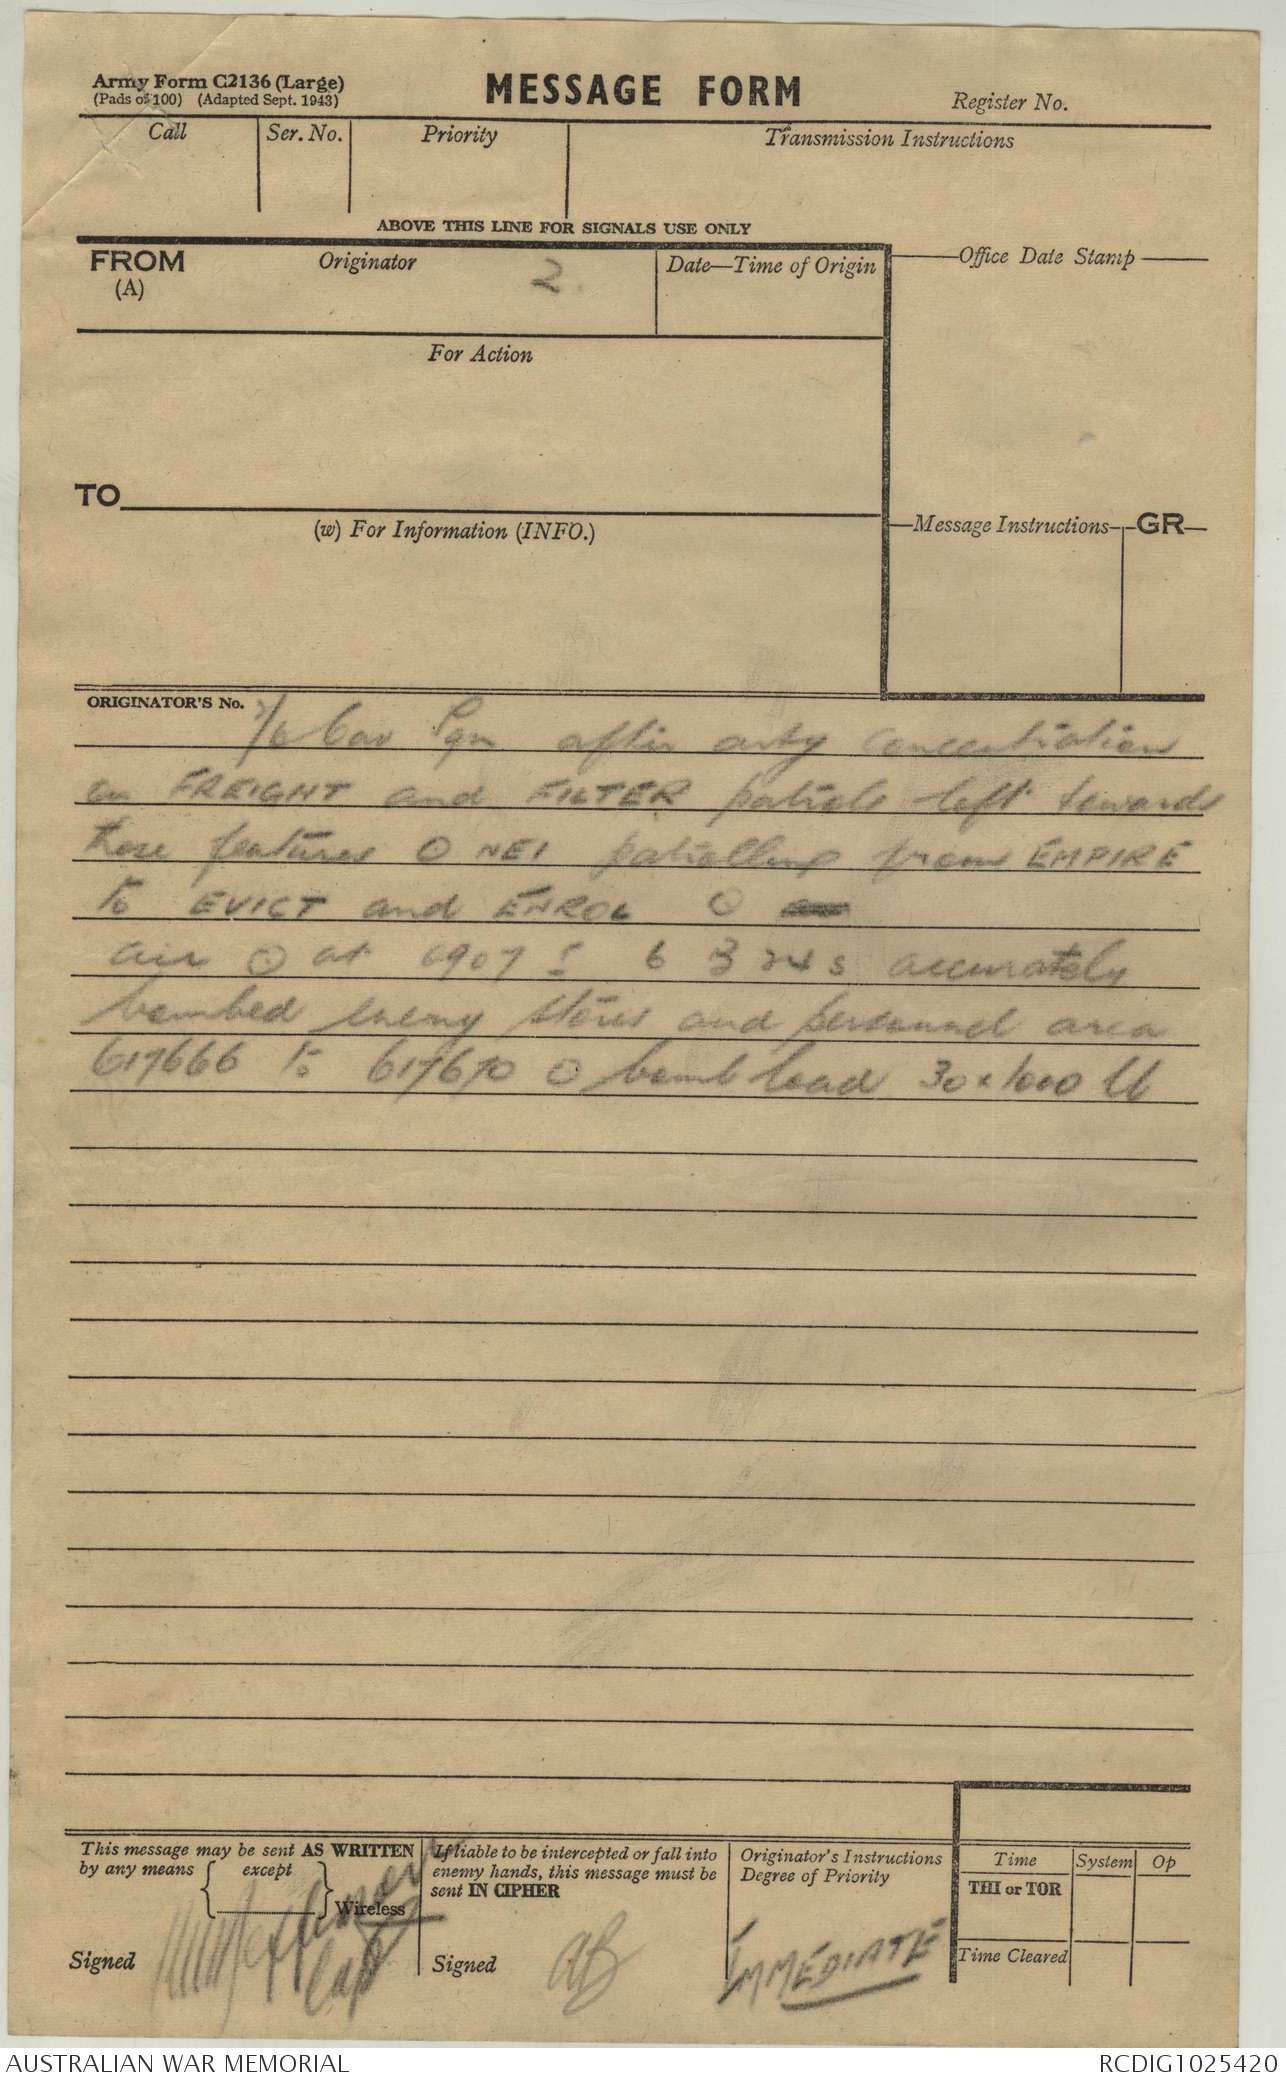 Army Form C2136 (Large)
(Pads of 100) (Adapted Sept. 1943)
MESSAGE FORM
Register No.
Call
Ser. No.
Priority
Transmission Instructions
ABOVE THIS LINE FOR SIGNALS USE ONLY
FROM
(A)
Originator
2
Date—Time of Origin
Office Date Stamp
For Action
TO
(w) For Information (INFO.)
Message Instructions
GR
ORIGINATOR'S No.
Cav Sqn after arty concentration
on FREIGHT and FILTER patrols left towards
these features ⊙ NEI patrolling from EMPIRE
to EVICT and ENROL ⊙
air ⊙ at 0907 6 B 24 s accurately
bombed enemy stores and personnel area
617666 to 617670 ⊙ bomb load 30 x 1000 lb
This message may be sent AS WRITTEN
by any means
except
Wireless
Signed
Capt
If liable to be intercepted or fall into
enemy hands, this message must be
sent IN CIPHER
Signed
AB
Originator's Instructions
Degree of Priority
IMMEDIATE
Time
System
Op
THI or TOR
Time Cleared
AUSTRALIAN WAR MEMORIAL
RCDIG1025420